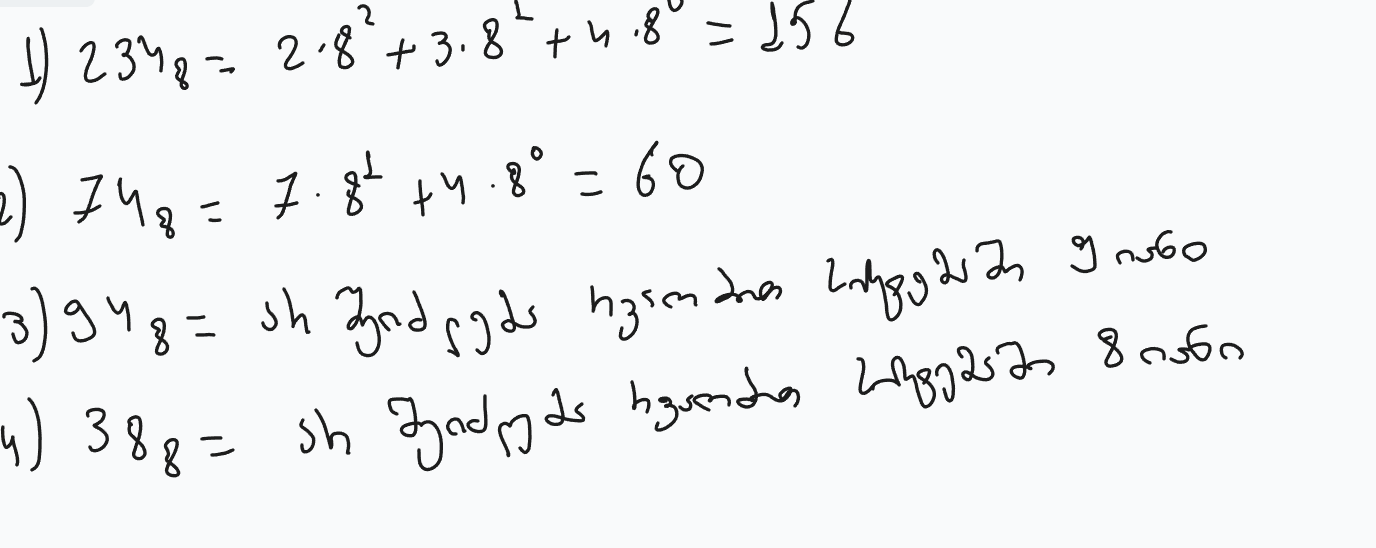 1) 234₈ = 2·8² + 3·8¹ + 4·8⁰ = 156
2) 74₈ = 7·8¹ + 4·8⁰ = 60
3) 94₈ = არ შეიძლება რვაობითა სისტემაში 9იანი
4) 38₈ = არ შეიძლება რვაობითა სისტემაში 8იანი